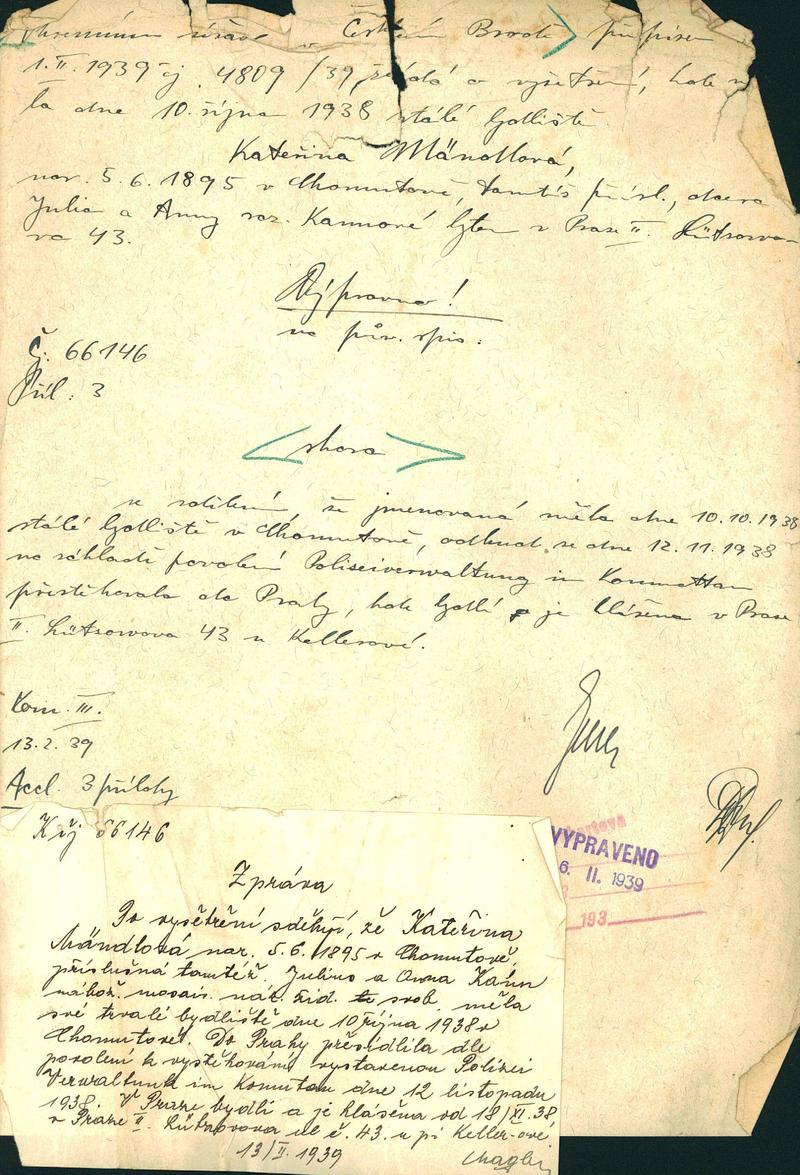 úřad v Českém Brodě přípisem
1.II.1939 čj. 4809/39 žádá o vyšetření, kde
la dne 10. října 1938 stálé bydliště
Kateřina Mändlová,
nar. 5.6.1895 v Chomutově, tamtéž přísl., dcera
Julia a Anny roz. Kannové bytem v Praze II. Lützowo-
va 43.
Výpravna!
na pův. spis.
Č. 66146
Příl. 3
shora
se sdělením, že jmenovaná měla dne 10.10.1938
stálé bydliště v Chomutově, odkud se dne 12.11.1938
na základě povolení Polizeiverwaltung in Komottau
přestěhovala do Prahy, kde bydlí a je hlášena v Praze
II. Lützowova 43 u Kellerové.
Kom. III.
13.2.39
Accl. 3 přílohy
VYPRAVENO
6. II. 1939
193
K čj 66146
Zpráva
Po vyšetření sděluji, že Kateřina
Mändlová nar. 5.6.1895 v Chomutově,
příslušná tamtéž. Julius a Anna Kann
nábož. mosais. nár. žid. svob. měla
své trvalé bydliště dne 10 října 1938 v
Chomutově. Do Prahy přesídlila dle
povolení k vystěhování vystavenou Polizei
Verwaltunk im Komutau dne 12 listopadu
1938. V Praze bydlí a je hlášena od 18/XI.38
v Praze II. Lützovova ul č. 43. u pí Keller-ové
13/II.1939